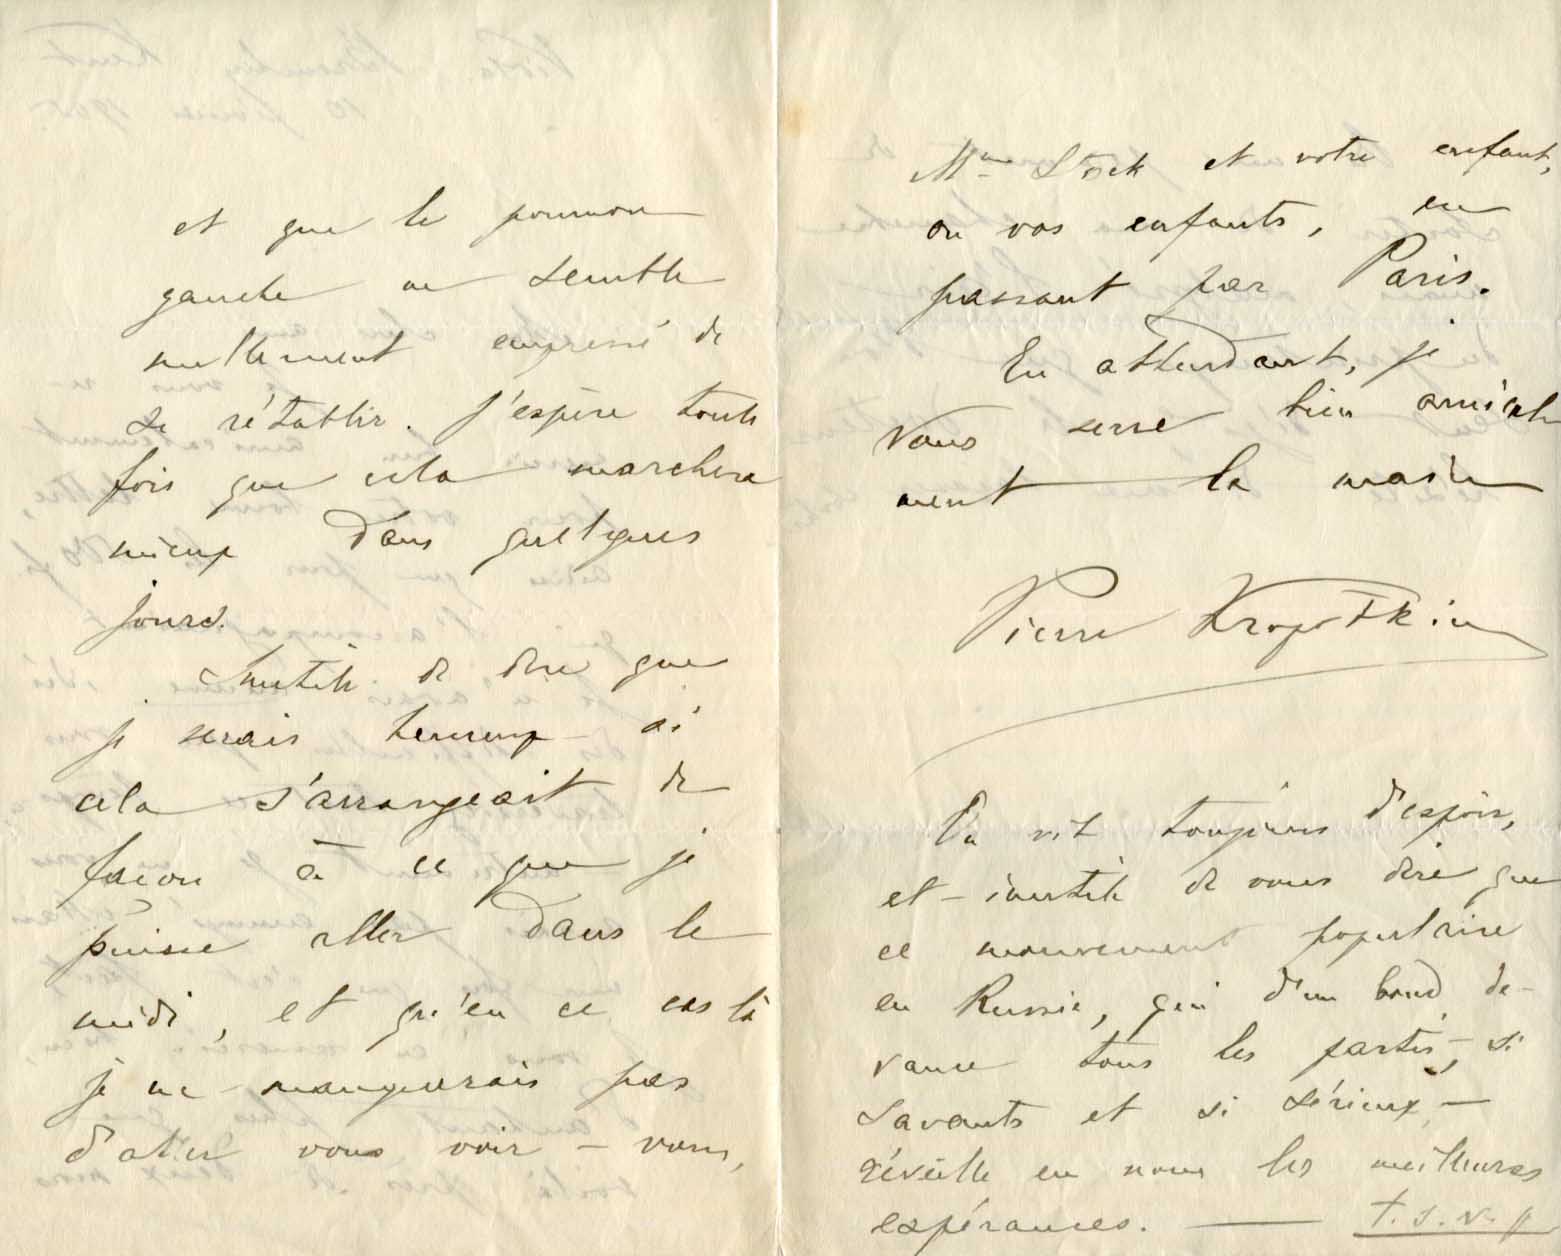 et que le poumon
gauche ne semble
nullement empressé de
se rétablir. J'espère toute
fois que cela marchera
mieux dans quelques
jours.
Inutile de dire que
je serais heureux si
cela s'arrangeait de
façon à ce que je
puisse aller dans le
midi, et qu'en ce cas là
je ne manquerais pas
d'aller vous voir – vous,
Mme Stock et votre enfant,
ou vos enfants, en
passant par Paris.
En attendant, je
vous serre bien amicale
ment la main
Pierre Kropotkine
On vit toujours d'espoir,
et – inutile de vous dire que
ce mouvement populaire
en Russie, qui d'un bond de-
vance tous les partis, – si
savants et si sérieux, –
réveille en nous les meilleures
espérances. — T.S.V.P